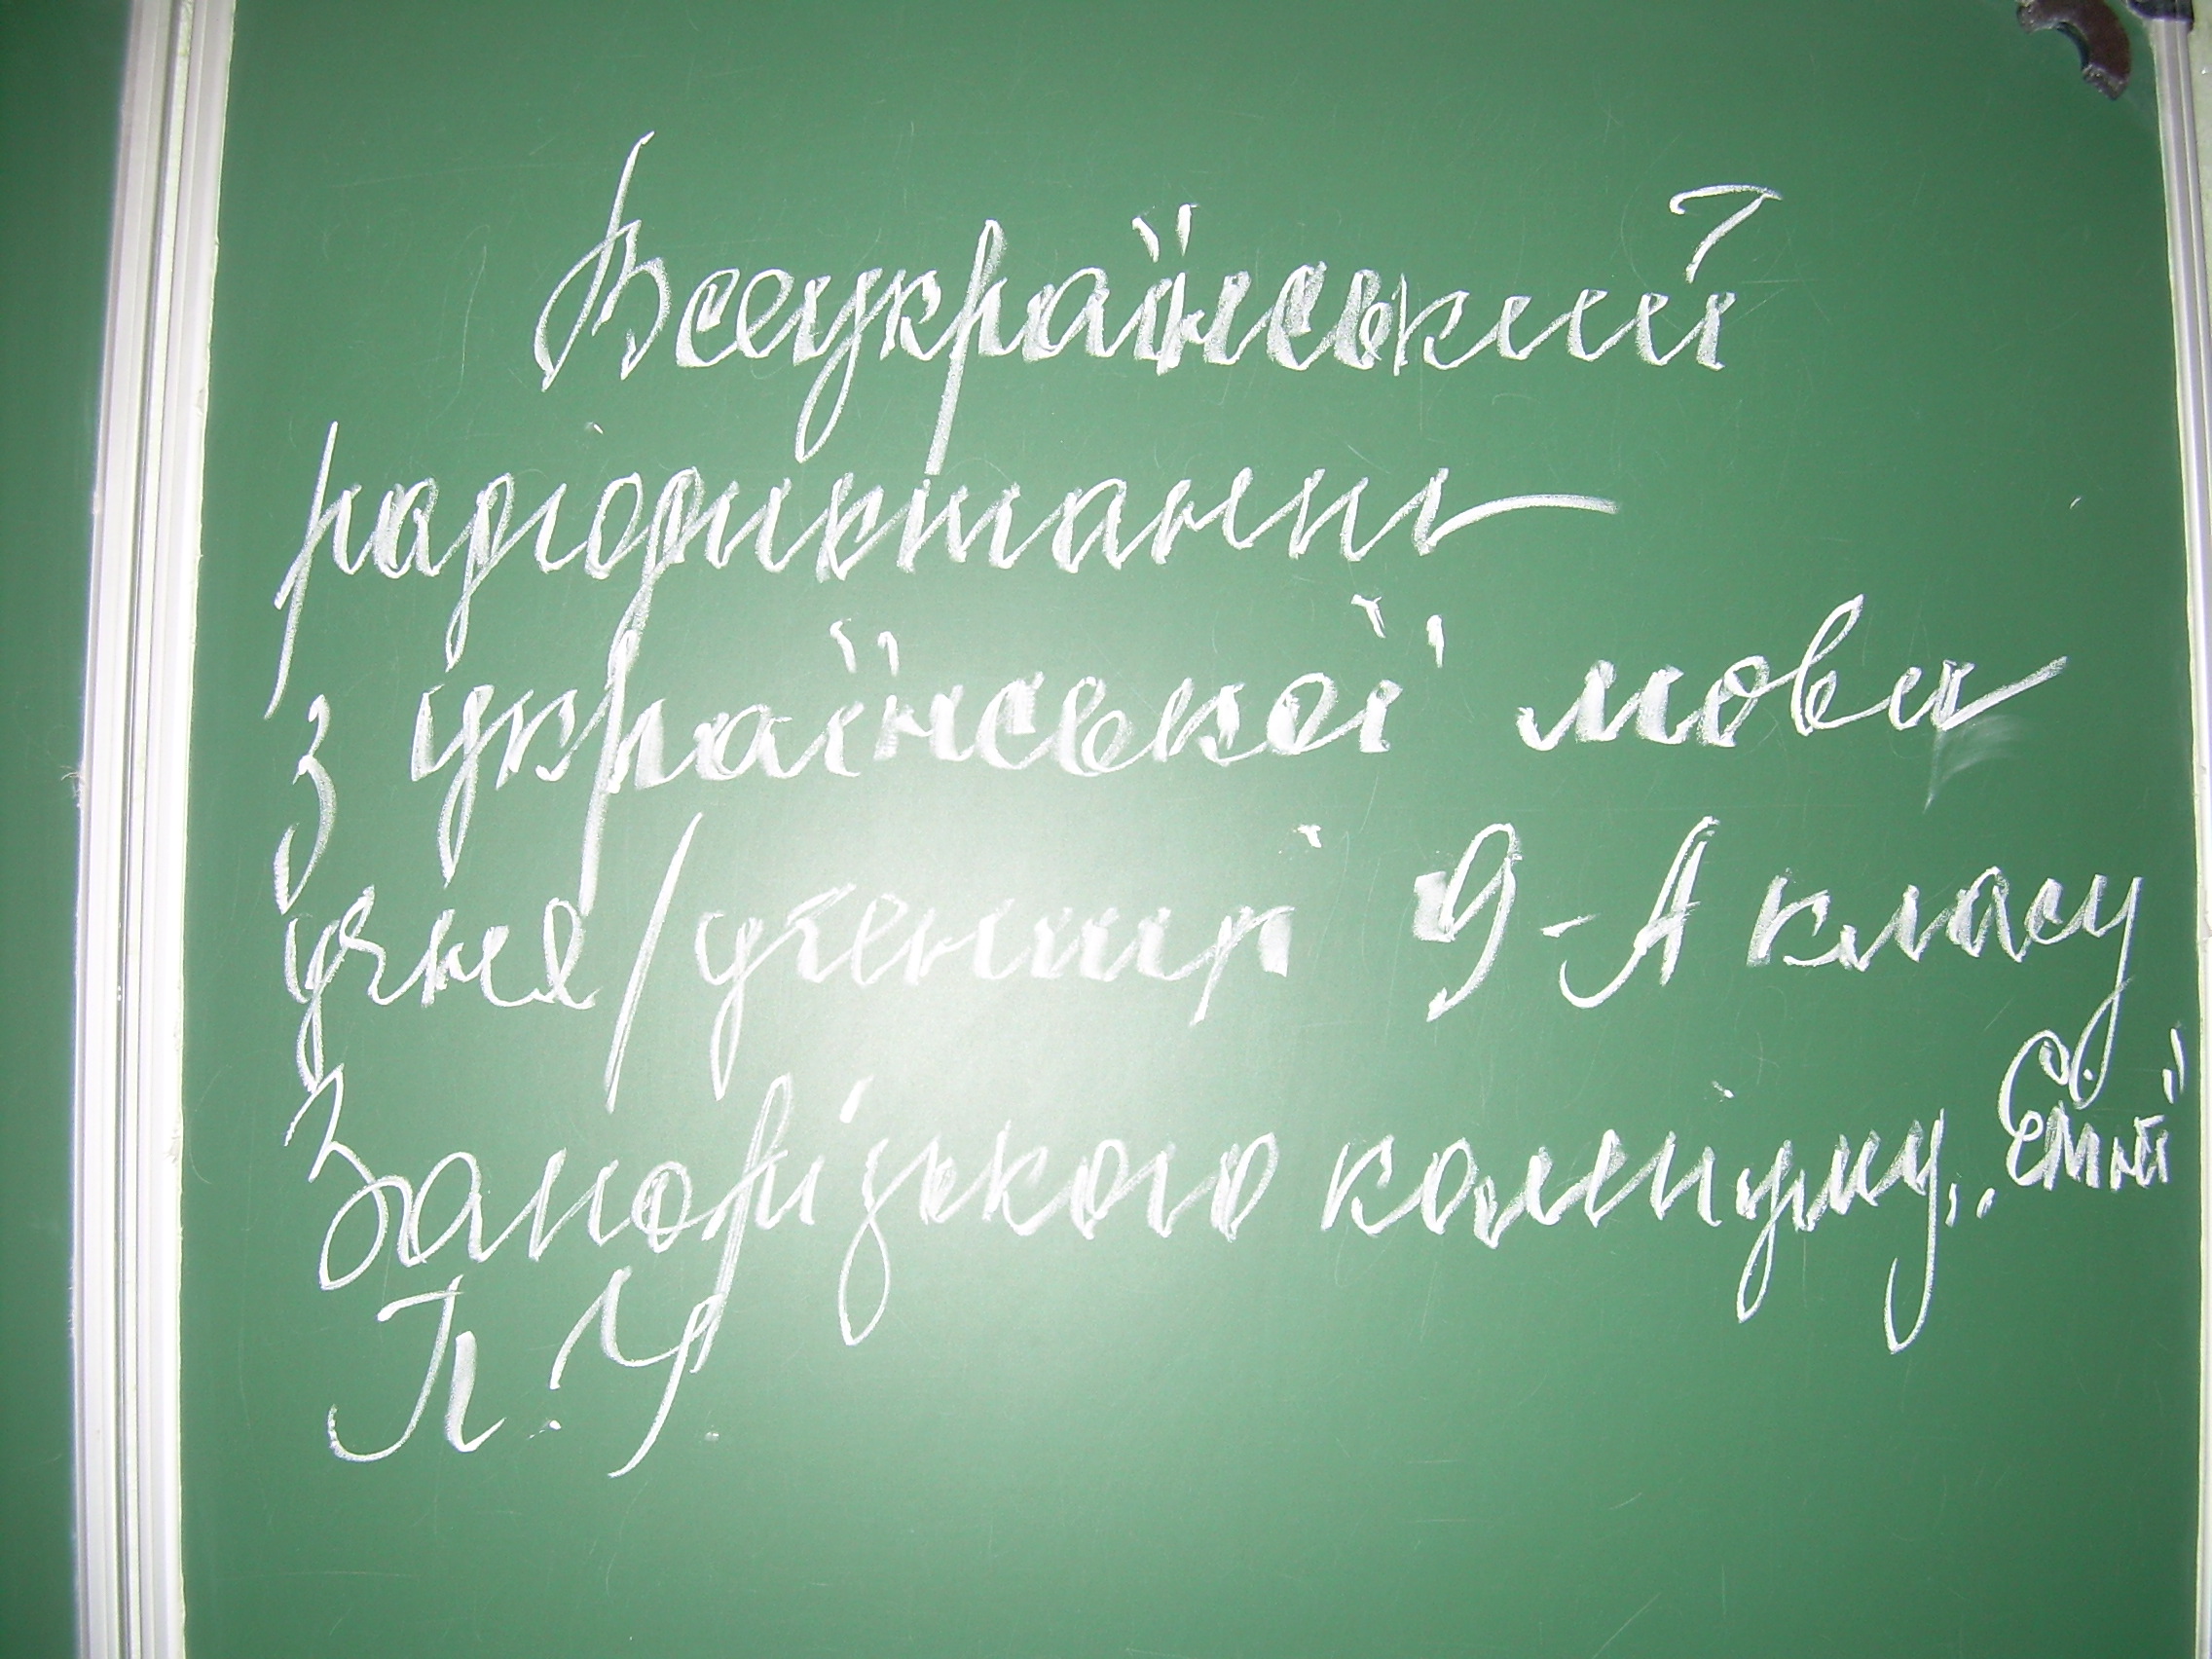 Всеукраїнський
радіодиктант
з української мови
учня/учениці 9-А класу
Запорізького колегіуму „Елінт"
П.І.